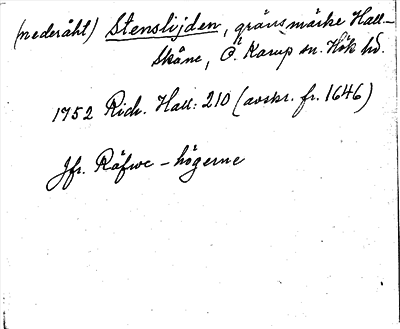 (nederåht) Stenslijden, gränsmärke Hall-
Skåne, Ö. Karup sn. Hök hd.
1752 Rich. Hall: 210 (avskr. fr. 1646)
Jfr. Räfwe-högerne